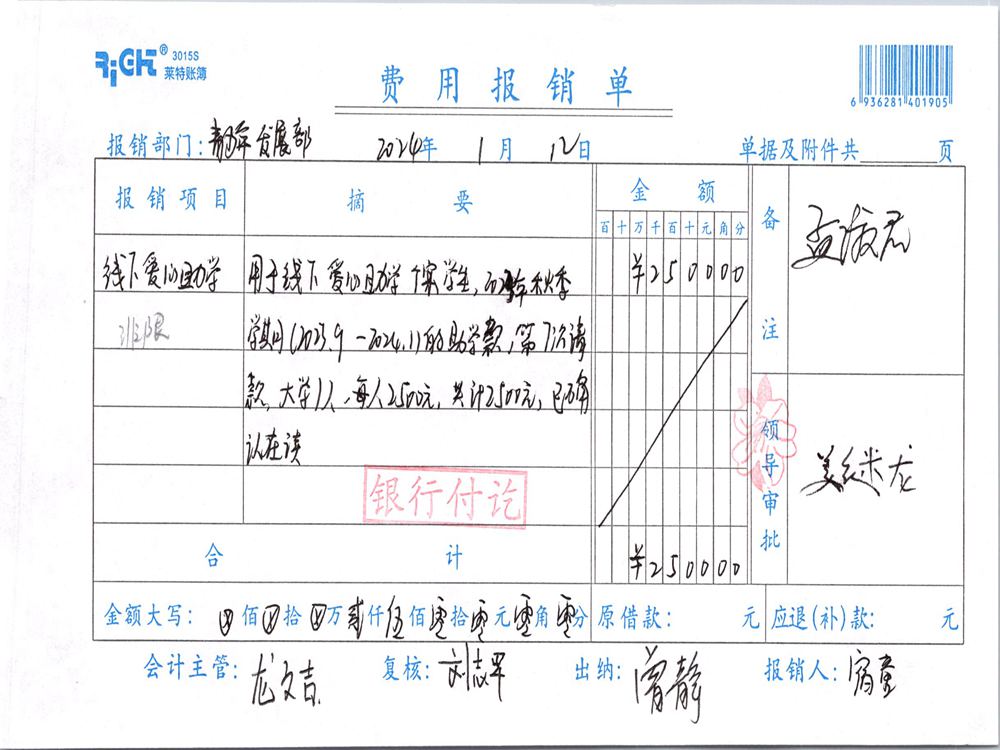 RiGHT® 3015S
莱特账簿
费用报销单
6 936281 401905
报销部门：青年发展部 2024年 1月 12日 单据及附件共 页
报销项目 摘要 金额 备注
百十万千百十元角分
线下爱心助学 用于线下爱心助学个案学生，2023年秋季 ¥250000
非限 学期(2023.9-2024.1)的助学款，第7次请
款，大学1人，每人2500元，共计2500元，已确
认在读
银行付讫
领导审批
合计 ¥250000
金额大写： 佰 拾 万贰仟伍佰零拾零元零角零分 原借款： 元 应退(补)款： 元
会计主管：龙文吉 复核：刘志军 出纳：曾静 报销人：宿童